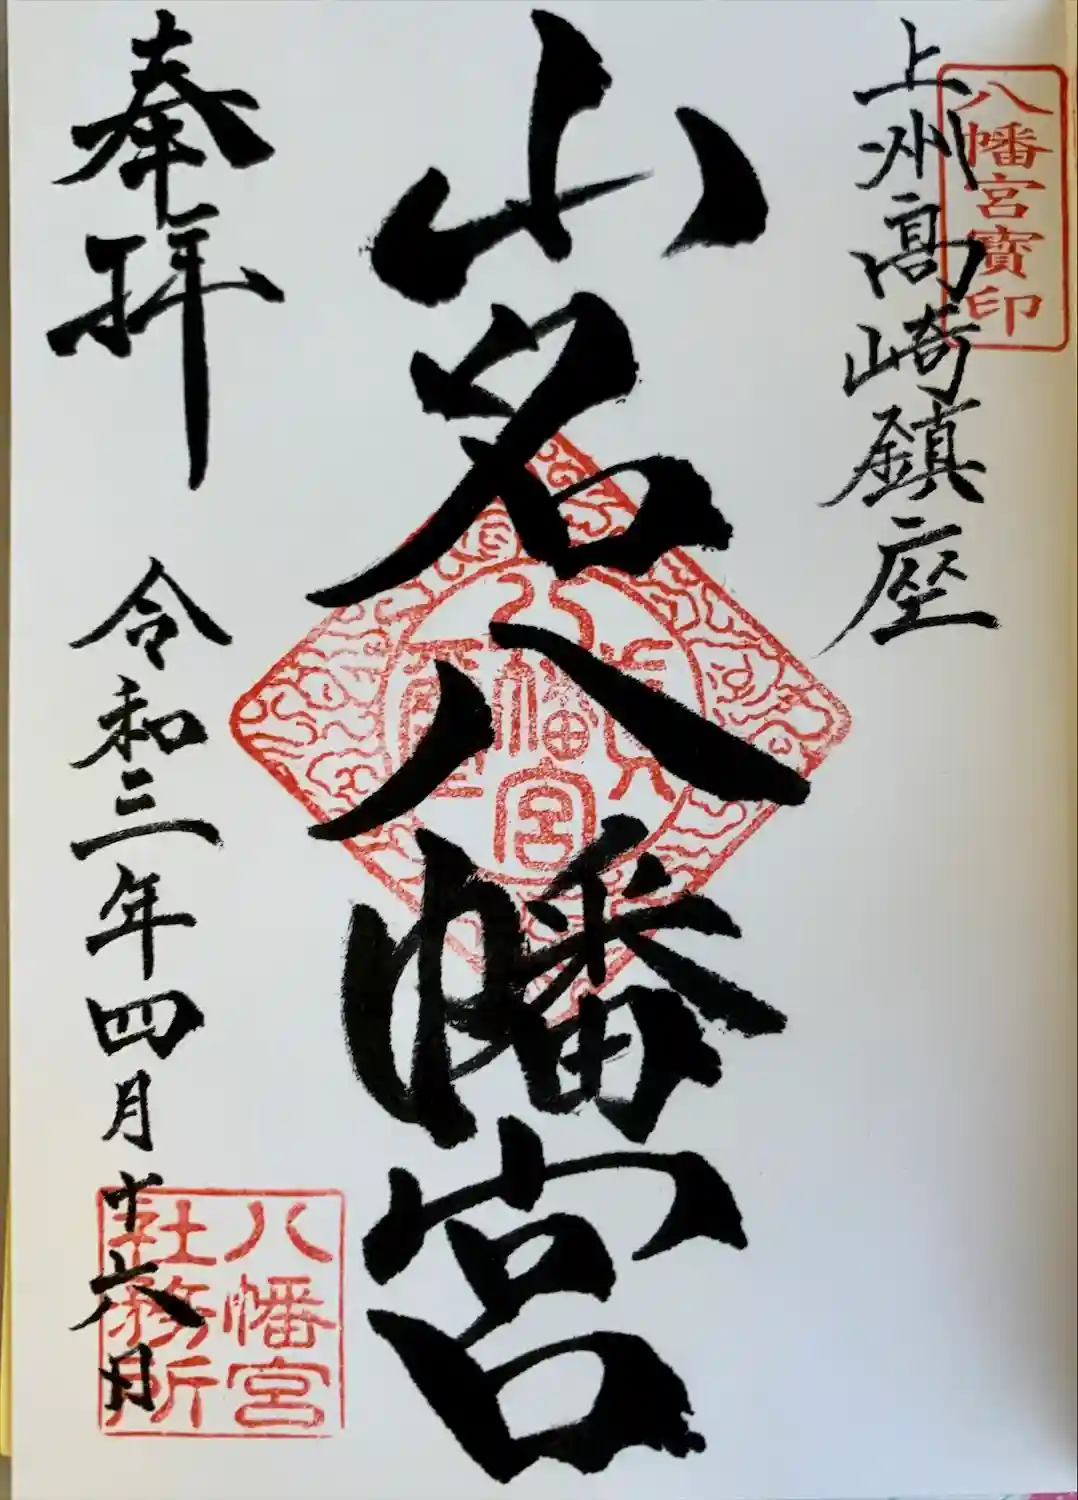 八幡宮寳印
上州高崎鎮座
山名八幡宮
八幡宮
奉拝
令和三年四月十六日
八幡宮
社務所